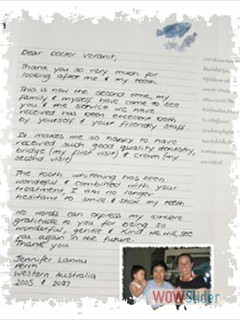 Dear Doctor Veranit,
Thank you so very much for
looking after me & my teeth.
This is now the second time, my
family & myself have come to see
you & the service we have
received has been excellent both
by yourself & your friendly staff.
It makes me so happy to have
received such good quality dentistry,
bridge (my first visit) & crown (my
second visit)
The tooth whitening has been
wonderful & combined with your
treatment, I am no longer
hesitant to smile & show my teeth
No words can express my sincere
gratitude to you for being so
wonderful, gentle & kind. We will see
you again in the future.
Thank you
Jennifer
Perth
Western Australia
2005 & 2007
WOWSlider